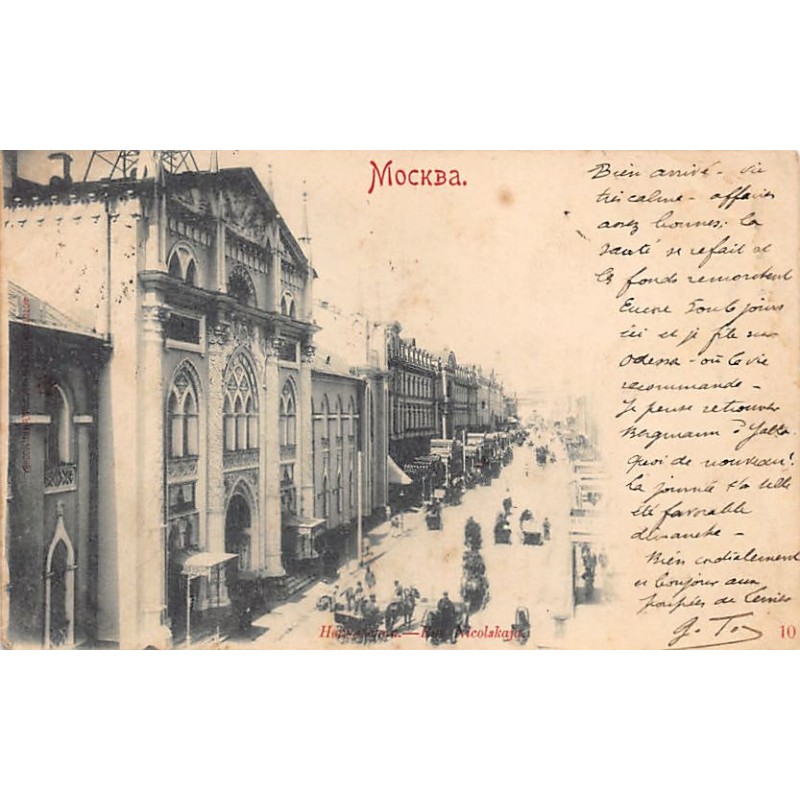 Москва.
Bien arrivé - vie
très calme - affaires
assez bonnes; la
santé se refait et
les fonds remontent
Encore jours
ici et je file sur
Odessa - où la vie
recommande -
Je pense retrouver
Bergmann à Yalta
Quoi de nouveau?
La journée a-t-elle
été favorable
dimanche -
Bien cordialement
et bonjour aux
poupées de
Rue Nicolskaja.
10